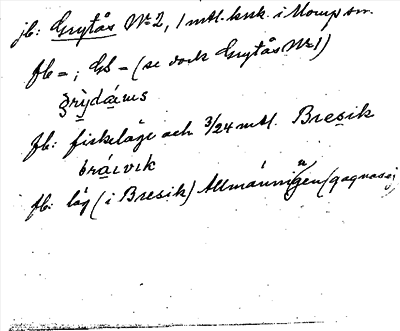 jb: Grytås No 2, 1 mtl. krsk. i Momp sn.
fb = ; GS = (se dock Grytås No 1)
fb: fiskeläge och 3/24 mtl. Bresik
bráivik
fb: låg (i Bresik) Allmänningen (gagnas